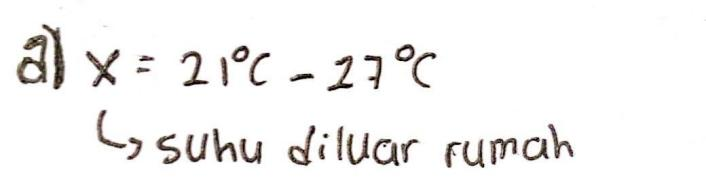 a) x = 21°C - 27°C
↳ suhu diluar rumah